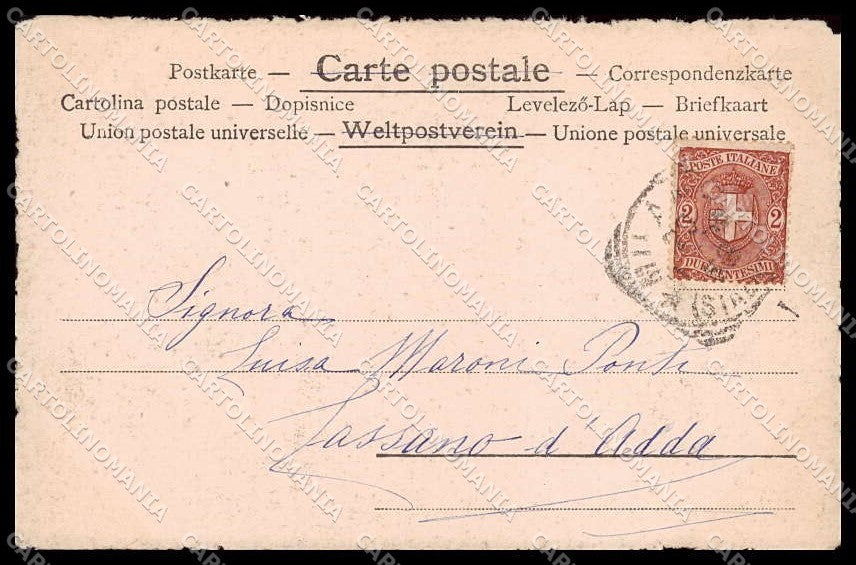 Postkarte — Carte postale — Correspondenzkarte
Cartolina postale — Dopisnice Levelező-Lap — Briefkaart
Union postale universelle — Weltpostverein — Unione postale universale
POSTE ITALIANE
2 2
DUE CENTESIMI
MILANO
(STAZ
Signora
Luisa Maroni Ponti
Cassano d'Adda
CARTOLINOMANIA